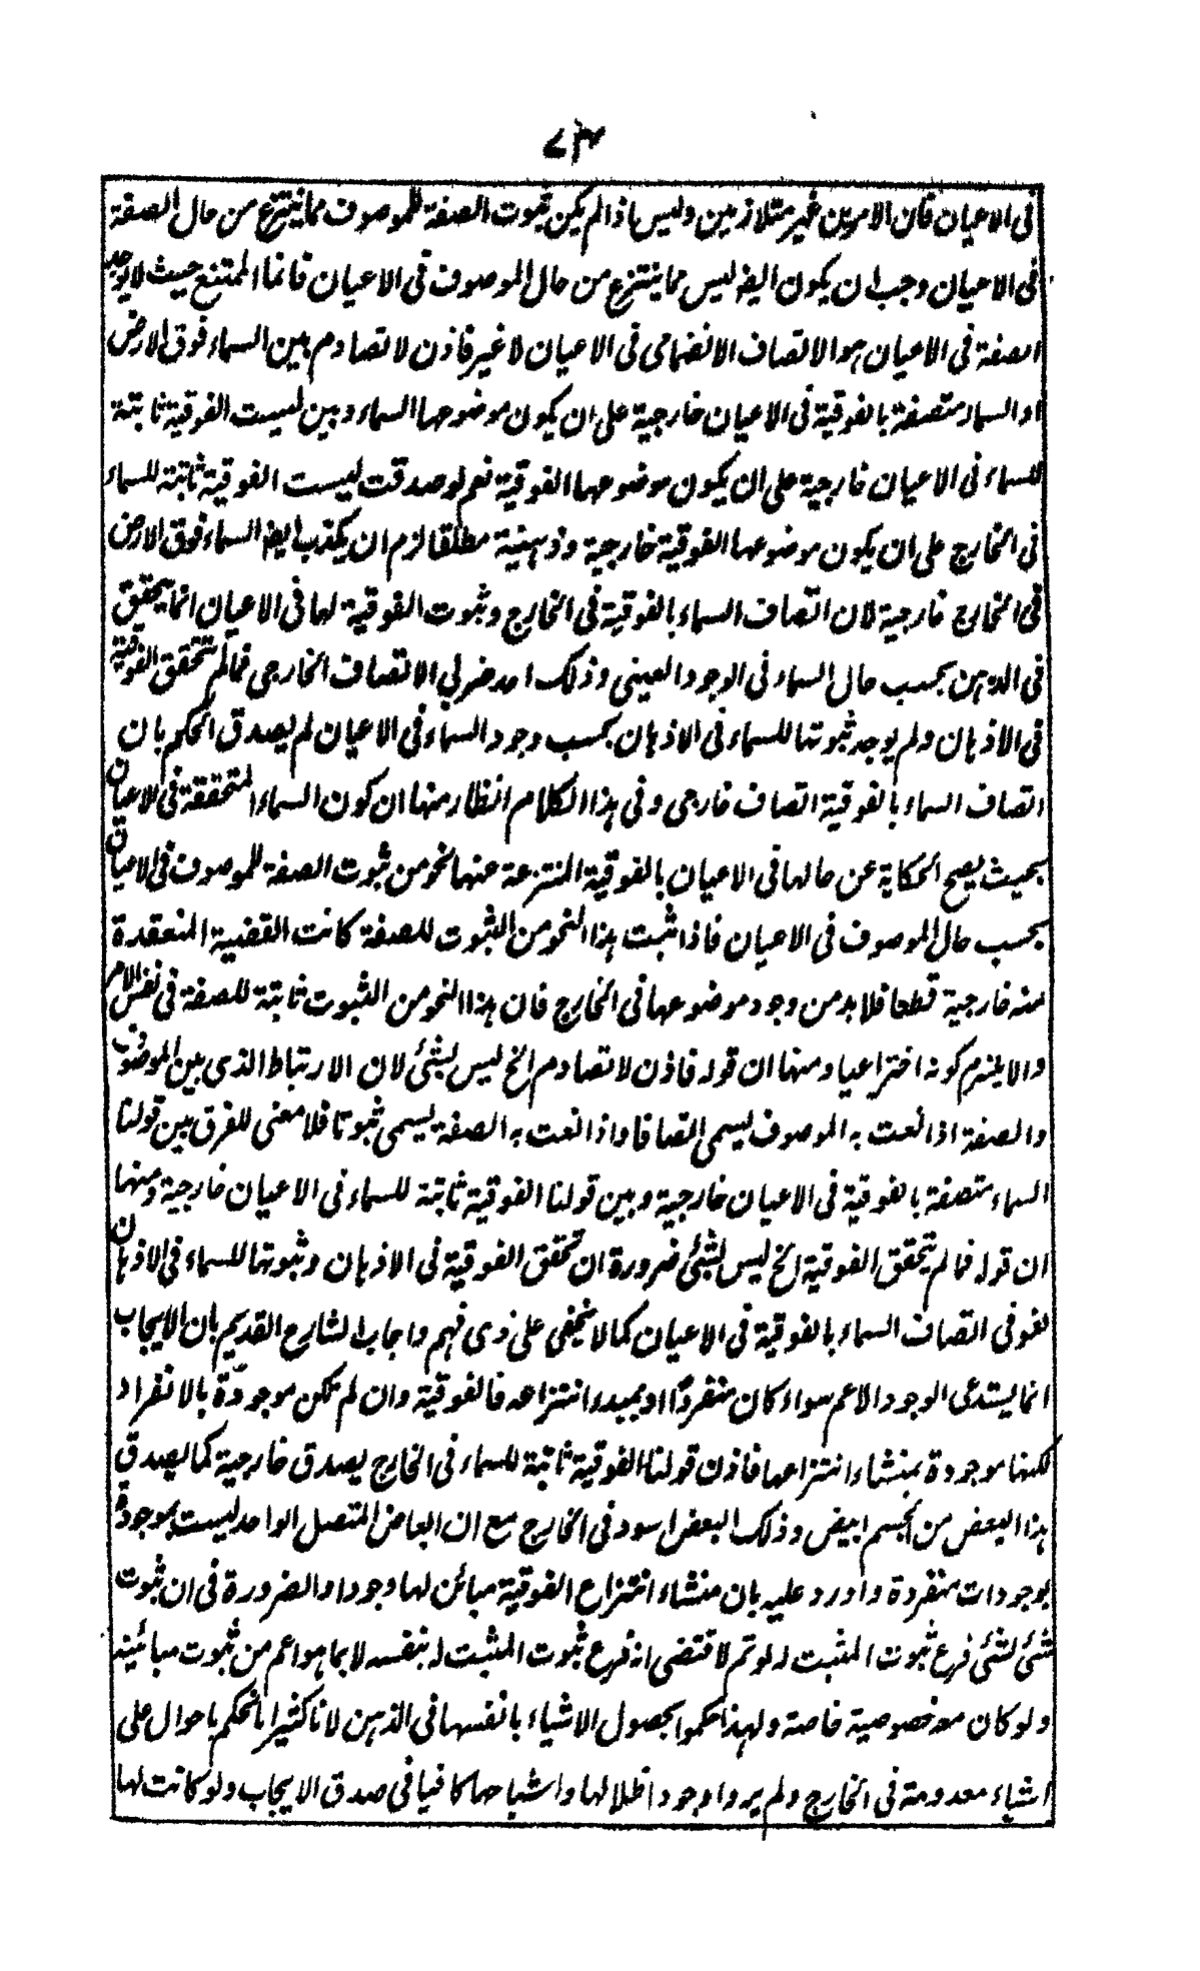 ٧٣
فى الاعيان فان الامرين غير متلازمين وليس اذا لم يكن ثبوت الصفة للموصوف مما ينتزع من حال الصفة
فى الاعيان وجب ان يكون ايضا ليس مما ينتزع من حال الموصوف فى الاعيان فانما الممتنع حيث لا يوجد
الصفة فى الاعيان هو الاتصاف الانضمامى فى الاعيان لا غير فاذن لا تصادم بين السماء فوق الارض
او السماء متصفة بالفوقية فى الاعيان خارجية على ان يكون موضوعها السماء وبين ليست الفوقية ثابتة
للسماء فى الاعيان خارجية على ان يكون موضوعها الفوقية نعم لو صدقت ليست الفوقية ثابتة للسماء
فى الخارج على ان يكون موضوعها الفوقية خارجية وذهنية مطلقا لزم ان يكذب ايضا السماء فوق الارض
فى الخارج خارجية لان اتصاف السماء بالفوقية فى الخارج وثبوت الفوقية لها فى الاعيان انما يتحقق
فى الذهن بحسب حال السماء فى الوجود العينى وذلك احد ضربى الاتصاف الخارجى فما لم تتحقق الفوقية
فى الاذهان ولم يوجد ثبوتها للسماء فى الاذهان بحسب وجود السماء فى الاعيان لم يصدق الحكم بان
اتصاف السماء بالفوقية اتصاف خارجى وفى هذا الكلام انظار منها ان كون السماء المتحققة فى الاعيان
بحيث يصح الحكاية عن حالها فى الاعيان بالفوقية المنتزعة عنها نحو من ثبوت الصفة للموصوف فى الاعيان
بحسب حال الموصوف فى الاعيان فاذا ثبت هذا النحو من الثبوت للصفة كانت القضية المنعقدة
منه خارجية قطعا فلا بد من وجود موضوعها فى الخارج فان هذا النحو من الثبوت ثابتة للصفة فى نفس الامر
والا يلزم كونه اختراعيا ومنها ان قوله فاذن لا تصادم الخ ليس بشئ لان الارتباط الذى بين الموصوف
والصفة اذا نعت به الموصوف يسمى اتصافا واذا نعت به الصفة يسمى ثبوتا فلا معنى للفرق بين قولنا
السماء متصفة بالفوقية فى الاعيان خارجية وبين قولنا الفوقية ثابتة للسماء فى الاعيان خارجية ومنها
ان قوله فما لم يتحقق الفوقية الخ ليس بشئ ضرورة ان تحقق الفوقية فى الاذهان وثبوتها للسماء فى الاذهان
لغو فى اتصاف السماء بالفوقية فى الاعيان كما لا يخفى على ذى فهم واجاب الشارح القديم بان الايجاب
انما يستدعى الوجود الاعم سواء كان منفردًا او بمبدء انتزاعه فالفوقية وان لم تكن موجودة بالانفراد
لكنها موجودة بمنشاء انتزاعها فاذن قولنا الفوقية ثابتة للسماء فى الخارج يصدق خارجية كما يصدق
هذا البعض من الجسم ابيض وذلك البعض اسود فى الخارج مع ان ابعاض المتصل الواحد ليست بموجودة
بوجودات منفردة واورد عليه بان منشاء انتزاع الفوقية مبائن لها وجودا والضرورة فى ان ثبوت
شئ لشئ فرع ثبوت المثبت له لو تم لاقتضى انه فرع ثبوت المثبت له بنفسه لا بما هو اعم من ثبوت مبائنه
ولو كان معه خصوصية خاصة ولهذا حكموا بحصول الاشياء بانفسها فى الذهن لانا كثيرا ما نحكم باحوال على
اشياء معدومة فى الخارج ولم يروا وجود اظلالها واشباحها كافيا فى صدق الايجاب ولو كانت لها